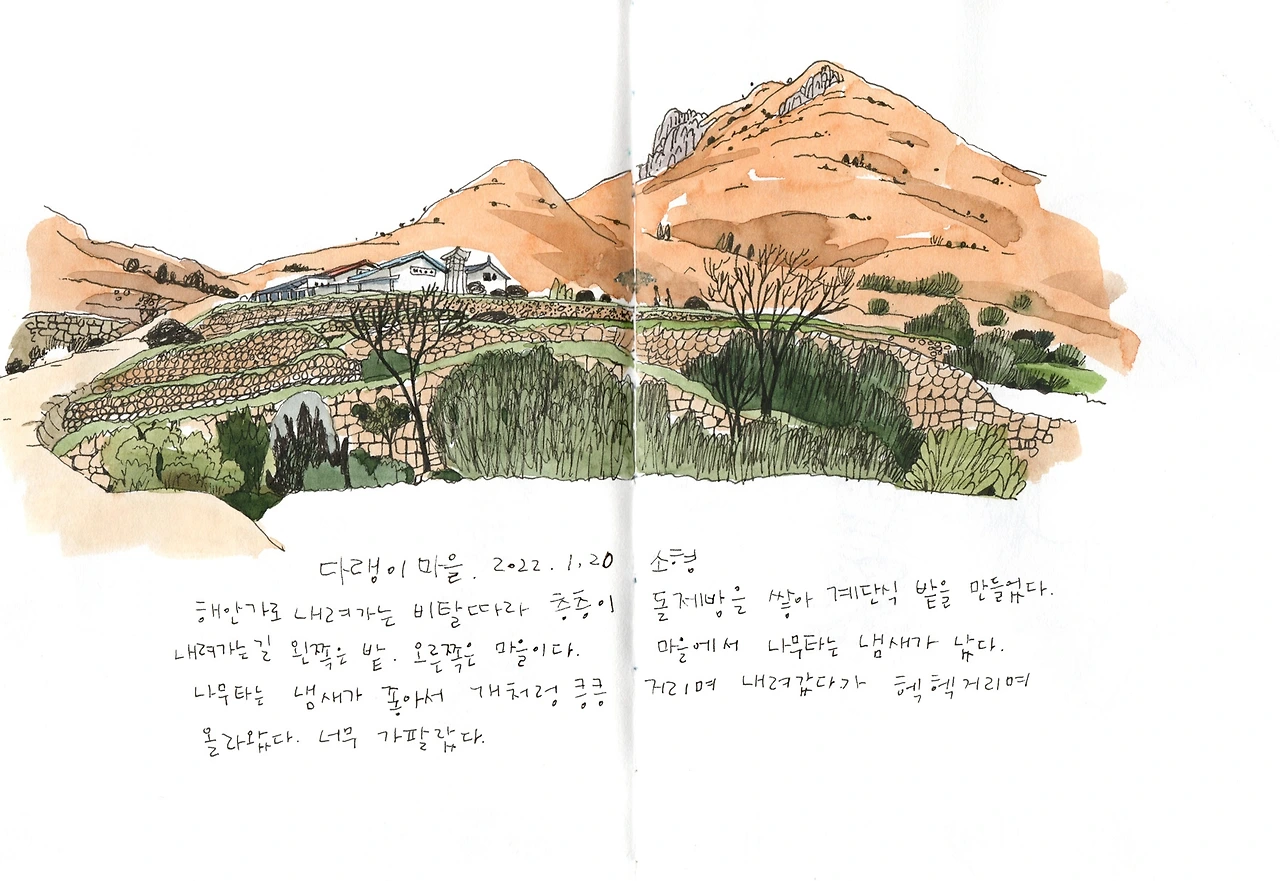 다랭이 마을. 2022. 1. 20 소형
해안가로 내려가는 비탈따라 층층이 돌제방을 쌓아 계단식 밭을 만들었다.
내려가는길 왼쪽은 밭. 오른쪽은 마을이다. 마을에서 나무타는 냄새가 났다.
나무타는 냄새가 좋아서 개처럼 킁킁 거리며 내려갔다가 헥헥거리며
올라왔다. 너무 가팔랐다.